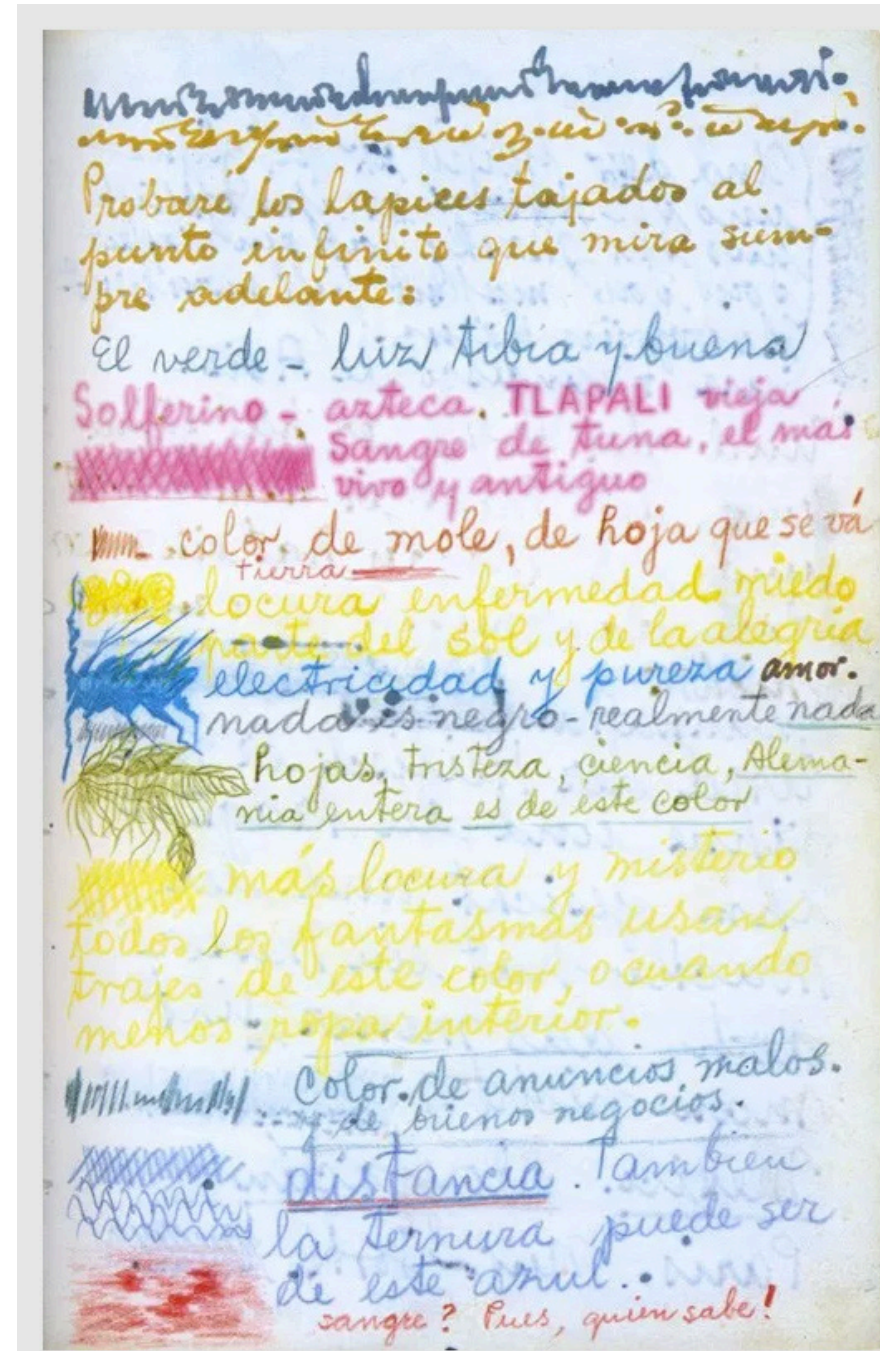 Probaré los lapices tajados al
punto infinito que mira siem-
pre adelante:
El verde - luz tibia y buena
Solferino - azteca. TLAPALI vieja
Sangre de tuna, el más
vivo y antiguo
color de mole, de hoja que se vá
tierra
locura enfermedad miedo
parte del sol y de la alegria
electricidad y pureza amor.
nada es negro - realmente nada
hojas, tristeza, ciencia, Alema-
nia entera es de este color
más locura y misterio
todos los fantasmas usan
trajes de este color, o cuando
menos ropa interior.
Color de anuncios malos.
y de buenos negocios.
distancia. Tambien
la ternura puede ser
de este azul.
sangre? Pues, quien sabe!